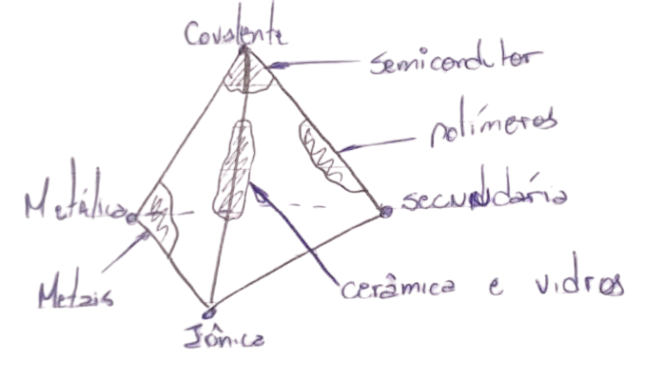 Covalente
semicondutor
polímeros
Metálica
secundária
Metais
cerâmica e vidros
Iônica